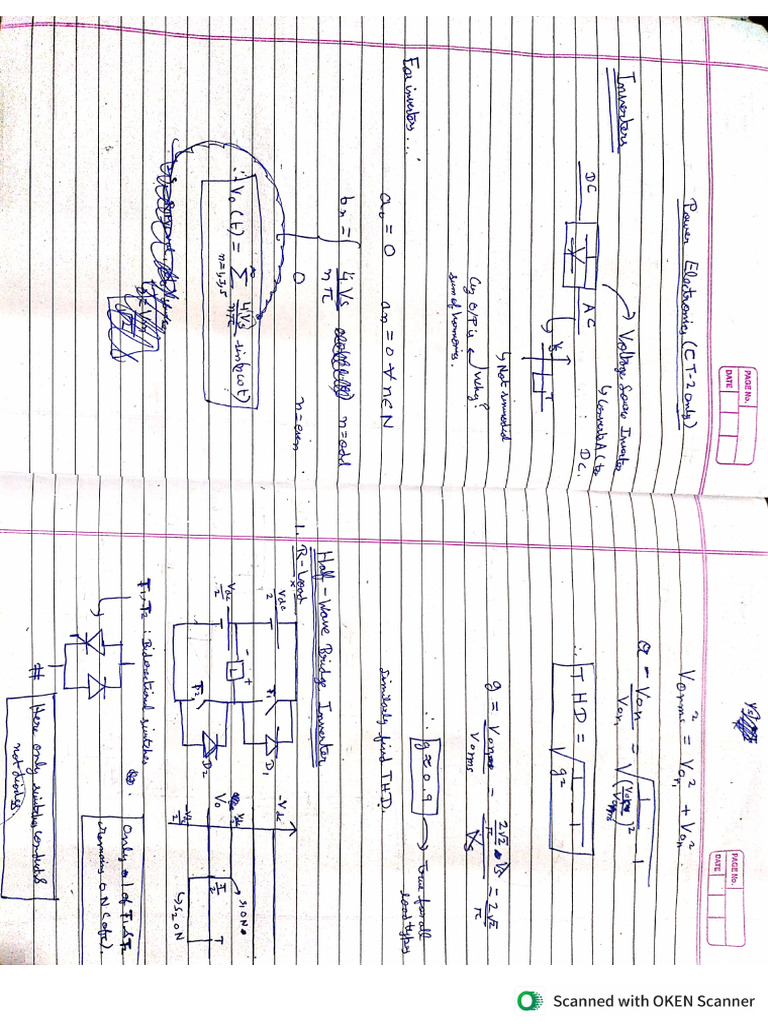 PAGE No.
DATE
Power Electronics (CT-2 only)
Inverters
DC
AC
→ Voltage Source Inverter
↳ Converts AC to
DC.
Vs
T
↳ Not sinusoidal
why?
Cuz O/P is
sum of harmonics.
For inverters...
a₀ = 0 aₙ = 0 ∀ n ∈ N
bₙ = { 4Vs / nπ n = odd
0 n = even
∴ V₀(t) = Σ n=1,3,5 4Vs/nπ · sin(nωt)
PAGE No.
DATE
V₀rms² = V₀₁² + V₀n²
= V₀n / V₀₁ = √(1/(V₀₁/V₀rms)² - 1
∴ THD = √(1/g² - 1)
g = / V₀rms = 2√2/π · Vs / Vs = 2√2/π
∴ g ≈ 0.9 → True for all
load types
Similarly find THD.
Half-Wave Bridge Inverter
1. R-Load
Vdc/2
Vdc/2
+ L -
T₁
T₂
D₁
D₂
-Vdc
Vdc/2
V₀
-Vdc/2
T/2
T
→ S₁ ON
↳ S₂ ON
T₁, T₂ : Bidirectional switches
Only 1 of T₁ & T₂
remains ON (ofc).
# Here only switches conducts
not diodes
Scanned with OKEN Scanner